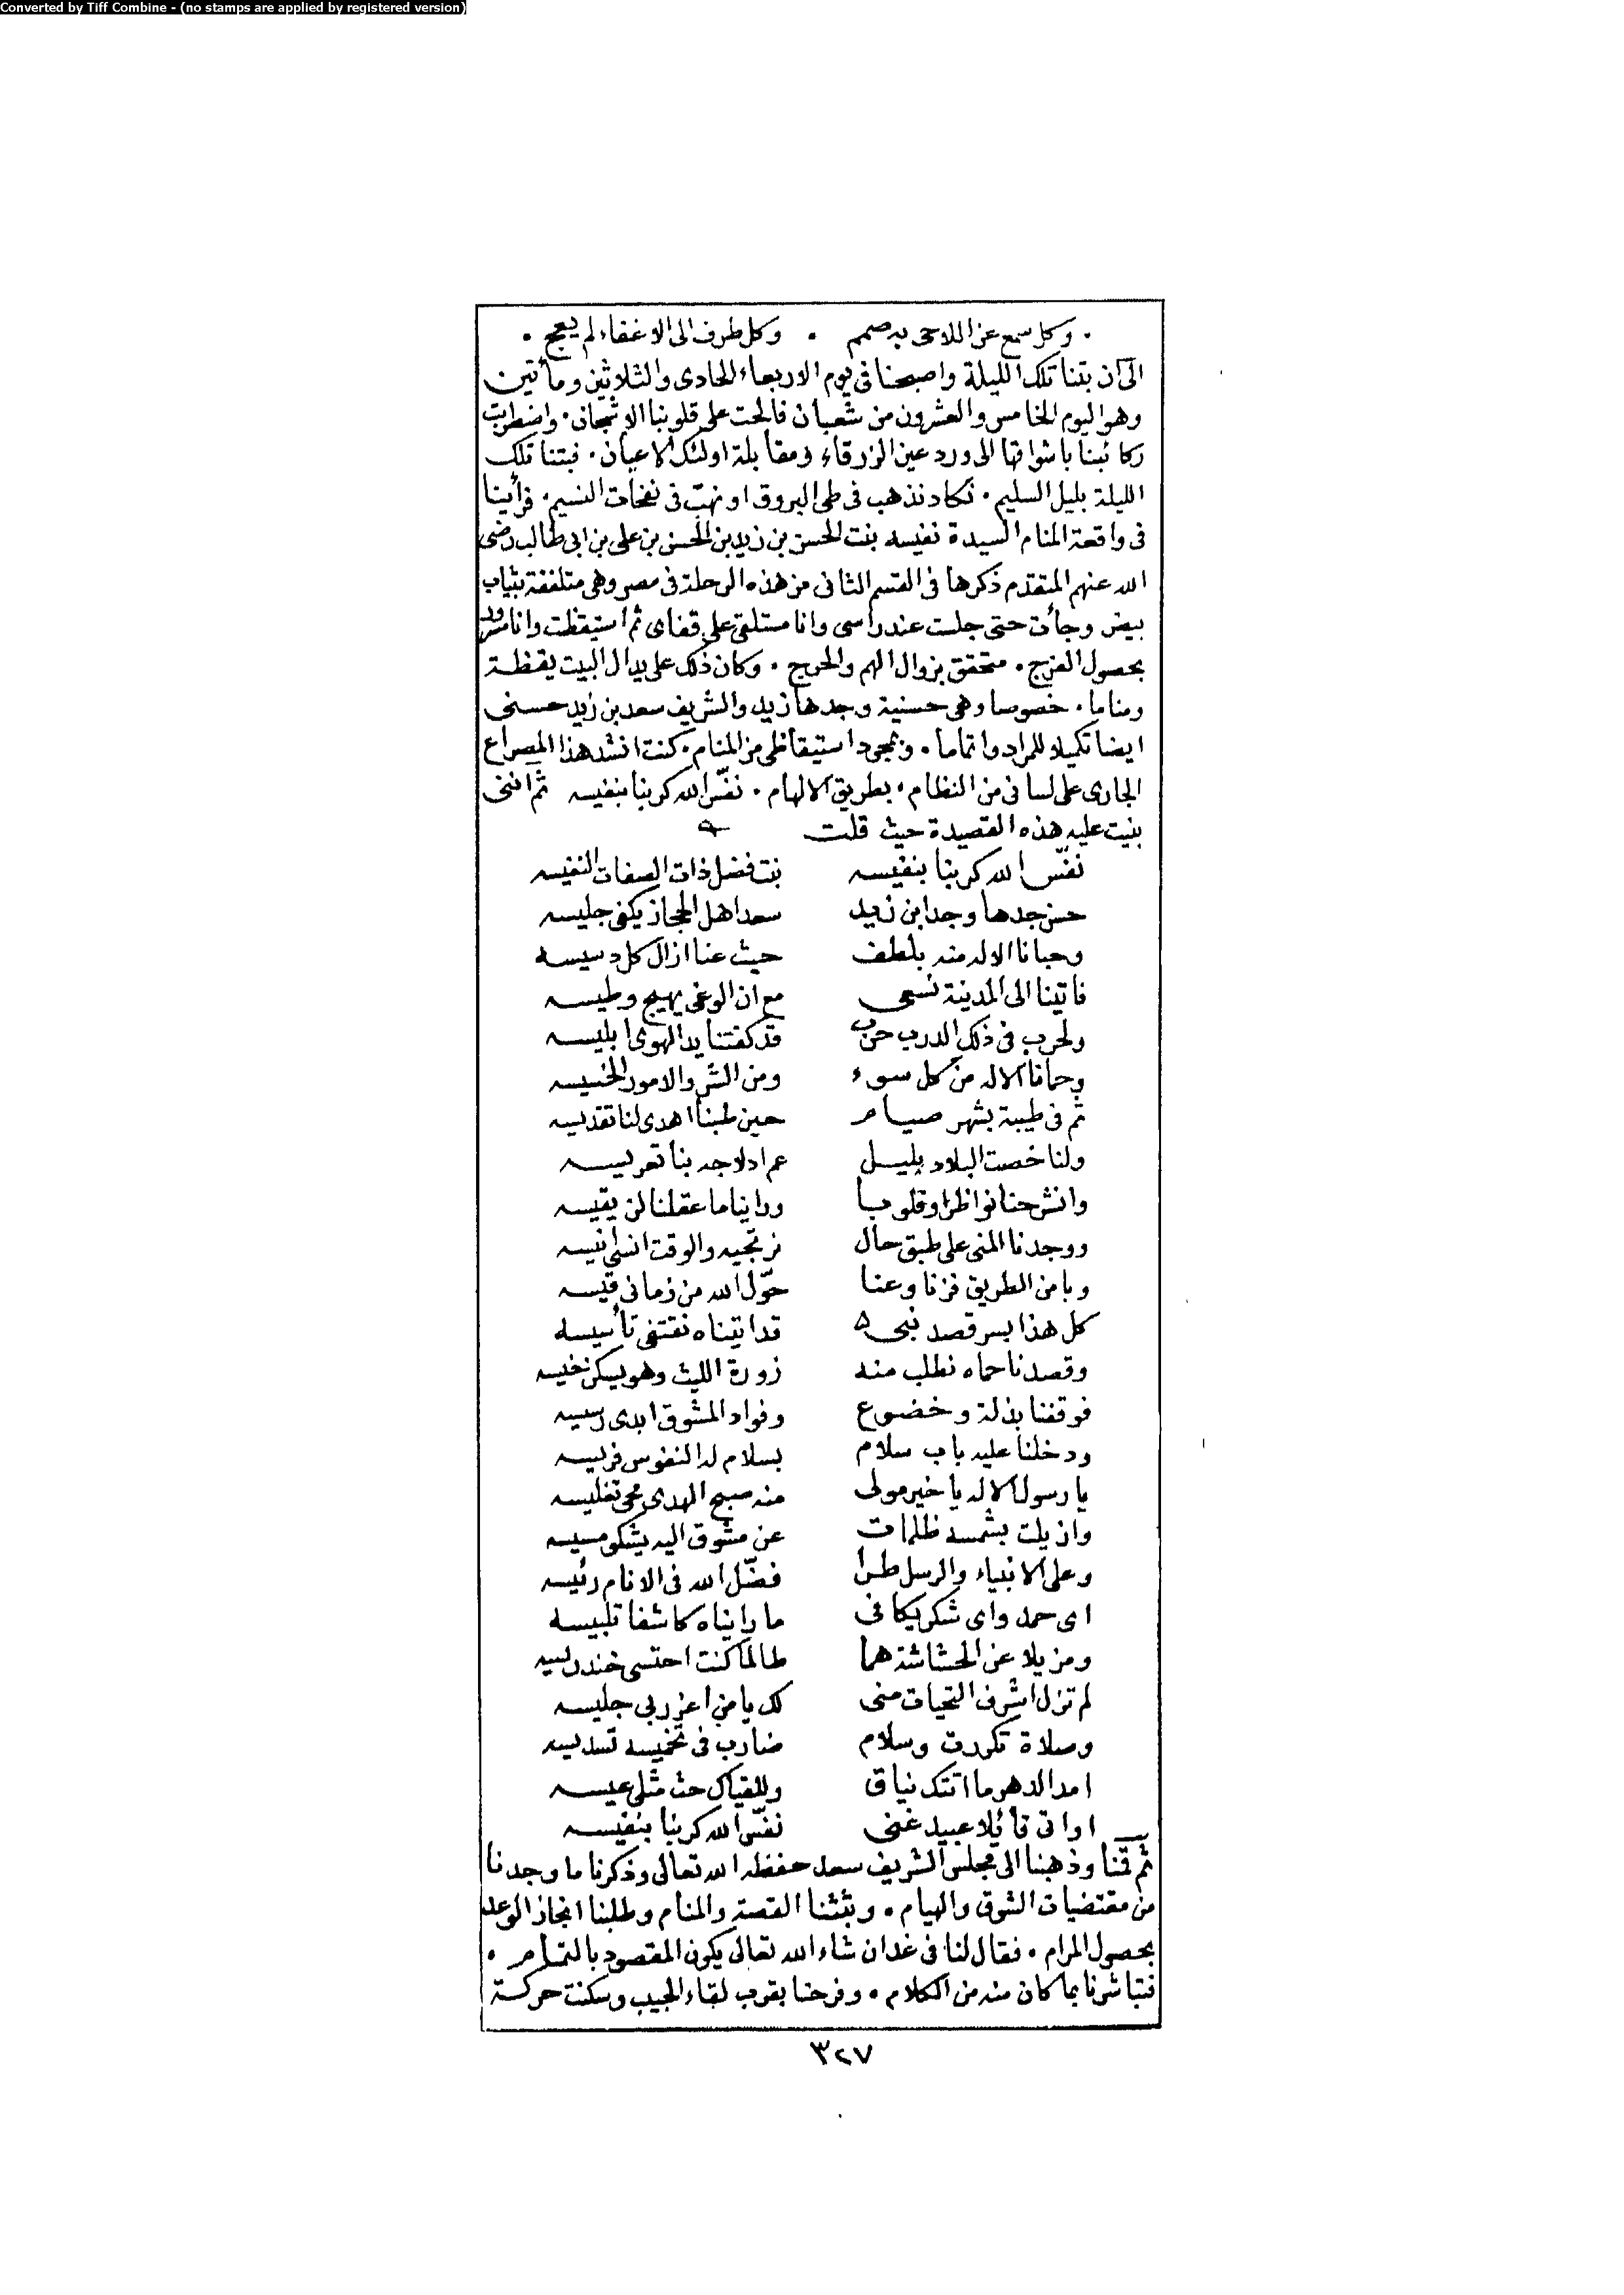 Converted by Tiff Combine - (no stamps are applied by registered version)
. وكل سمع عن اللاحى به صمم . وكل طرف الى الاغفاء لم يعج .
الى ان بتنا تلك الليلة واصبحنا فى يوم الاربعاء الحادى والثلاثين ومأتين
وهو اليوم الخامس والعشرون من شعبان فالحت على قلوبنا الاشجان . واضطربت
ركائبنا باشواقها الى ورد عين الزرقاء ومقابلة اولئك الاعيان . فبتنا تلك
الليلة بليل السليم . نكاد نذهب فى طى البروق او نهب فى نفخات النسيم . فرأينا
فى واقعة المنام السيدة نفيسه بنت الحسن بن زيد بن الحسن بن على بن ابى طالب رضى
الله عنهم المتقدم ذكرها فى القسم الثانى من هذه الرحلة فى مصر وهى متلففة بثياب
بيض وجأت حتى جلست عند راسى وانا مستلقى على قفاى ثم استيقظت وانا مسرور
بحصول الفرج . متحقق بزوال الهم والحرج . وكان ذلك على يد ال البيت يقظة
ومناما . خصوصا وهى حسنية وجدها زيد والشريف سعد بن زيد حسنى
ايضا تكميلا للمراد واتماما . وبمجرد استيقاظى من المنام . كنت انشد هذا المصراع
الجارى على لسانى من النظام . بطريق الالهام . نفّس الله كربنا بنفيسه ثم اننى
بنيت عليه هذه القصيدة حيث قلت
نفّس الله كربنا بنفيسه بنت فضل ذات الصفات النفيسه
حسن جدها وجد ابن زيد سعد اهل الحجاز يكفى جليسه
وحبانا الاله منه بلطف حيث عنا ازال كل دسيسه
فاتينا الى المدينة نسعى مع ان الوغى يهيج وطيسه
ولحرب فى ذلك الدرب حرب قد كفتنا يد الهوى ابليسه
وحمانا الاله من كل سوء ومن الشر والامور الخسيسه
ثم فى طيبة بشهر صيام حين طبنا اهدى لنا تقديسه
ولنا خصت البلاد بليل عم ادلاجه بنا تعريسه
وانشرحنا نواظرا وقلوبا وراينا ما عقلنا لن يقيسه
ووجدنا المنى على طبق حال نرتجيه والوقت انسى انيسه
وبامن الطريق فزنا وعنا حوّل الله من زمانى قيسه
كل هذا بسر قصد نبى قد اتيناه نقتفى تأسيسه
وقصدنا حماه نطلب منه زورة الليث وهو يسكن خيسه
فوقفنا بذلة وخضوع وفواد المشوق ابدى رسيسه
ودخلنا عليه باب سلام بسلام له النفوس فريسه
يا رسول الاله يا خير مولى منه صبح الهدى محى تغليسه
وازيلت بشمسه ظلمات عن مشوق اليه يشكو مسيسه
وعلى الانبياء والرسل طرا فضّل الله فى الانام رئيسه
اى حمد واى شكر يكافى ما راينا كاشفا تلبيسه
ومزيلا عن الحشاشة هما طالما كنت احتسى خندريسه
لم تزل اشرف التحيات منى لك يا من اعز ربى جليسه
وصلاة تكررت وسلام ضارب فى تخميسه تسديسه
امد الدهر ما اتتك نياق وللقياك حث مثلى عيسه
او اتى قائلا عبيد غنى نفّس الله كربنا بنفيسه
ثم قمنا وذهبنا الى مجلس الشريف سعد حفظه الله تعالى وذكرنا ما وجدنا
من مقتضيات الشوق والهيام . وبثثنا القصة والمنام وطلبنا انجاز الوعد
بحصول المرام . فقال لنا فى غد ان شاء الله تعالى يكون المقصود بالتمام .
فتباشرنا بما كان منه من الكلام . وفرحنا بقرب لقاء الحبيب وسكنت حركة
٣٢٧